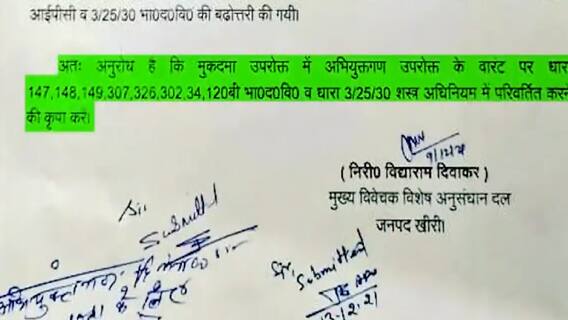 आईपीसी व 3/25/30 भा0द0वि0 की बढोत्तरी की गयी।
अतः अनुरोध है कि मुकदमा उपरोक्त में अभियुक्तगण उपरोक्त के वारंट पर धारा
147,148,149,307,326,302,34,120बी भा0द0वि0 व धारा 3/25/30 शस्त्र अधिनियम में परिवर्तित करने
की कृपा करें।
( निरी0 विद्याराम दिवाकर )
मुख्य विवेचक विशेष अनुसंधान दल
जनपद खीरी।
Sir
Submitted
Sir,
Submitted